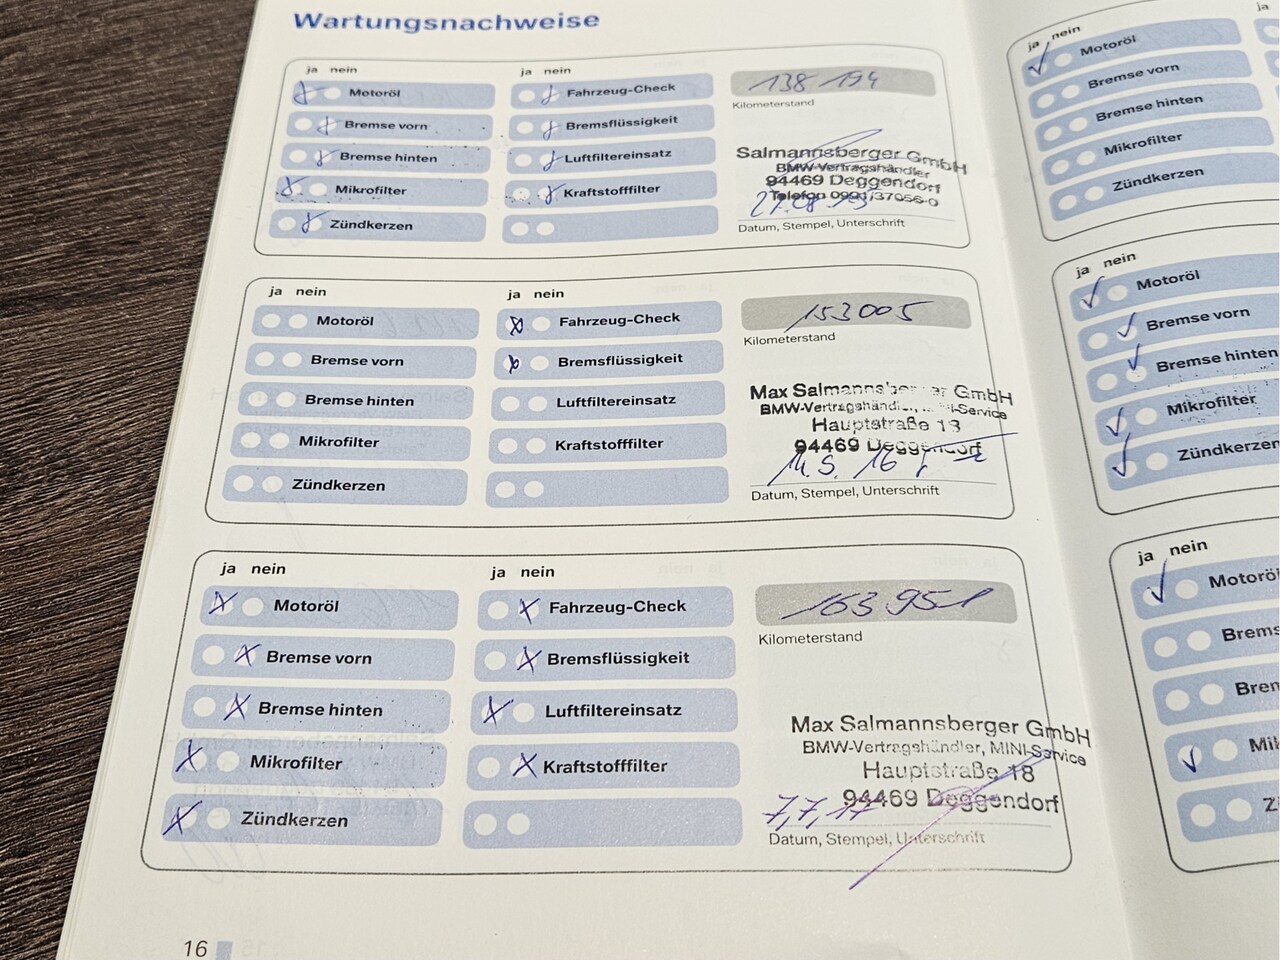 Wartungsnachweise
ja nein
Motoröl
Bremse vorn
Bremse hinten
Mikrofilter
Zündkerzen
ja nein
Fahrzeug-Check
Bremsflüssigkeit
Luftfiltereinsatz
Kraftstofffilter
138 194
Kilometerstand
Salmannsberger GmbH
BMW-Vertragshändler
94469 Deggendorf
Telefon 0991/37056-0
Datum, Stempel, Unterschrift
ja nein
Motoröl
Bremse vorn
Bremse hinten
Mikrofilter
Zündkerzen
ja nein
Fahrzeug-Check
Bremsflüssigkeit
Luftfiltereinsatz
Kraftstofffilter
153005
Kilometerstand
Max Salmannsberger GmbH
Hauptstraße 18
94469 Deggendorf
Datum, Stempel, Unterschrift
ja nein
Motoröl
Bremse vorn
Bremse hinten
Mikrofilter
Zündkerzen
ja nein
Fahrzeug-Check
Bremsflüssigkeit
Luftfiltereinsatz
Kraftstofffilter
163951
Kilometerstand
Max Salmannsberger GmbH
BMW-Vertragshändler, MINI-Service
Hauptstraße 18
94469 Deggendorf
7,7,17
Datum, Stempel, Unterschrift
16
ja nein
Motoröl
Bremse vorn
Bremse hinten
Mikrofilter
Zündkerzen
ja
ja nein
Motoröl
Bremse vorn
Bremse hinten
Mikrofilter
Zündkerzen
ja nein
Motoröl
Brems
Brem
Mik
Z